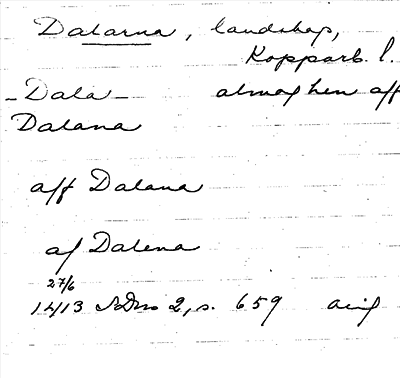 Dalarna, landskap,
Kopparb. l.
-Dala- almoghen aff
Dalana
aff Dalana
af Dalena
27/6
1413 SDns 2, s. 659 avig